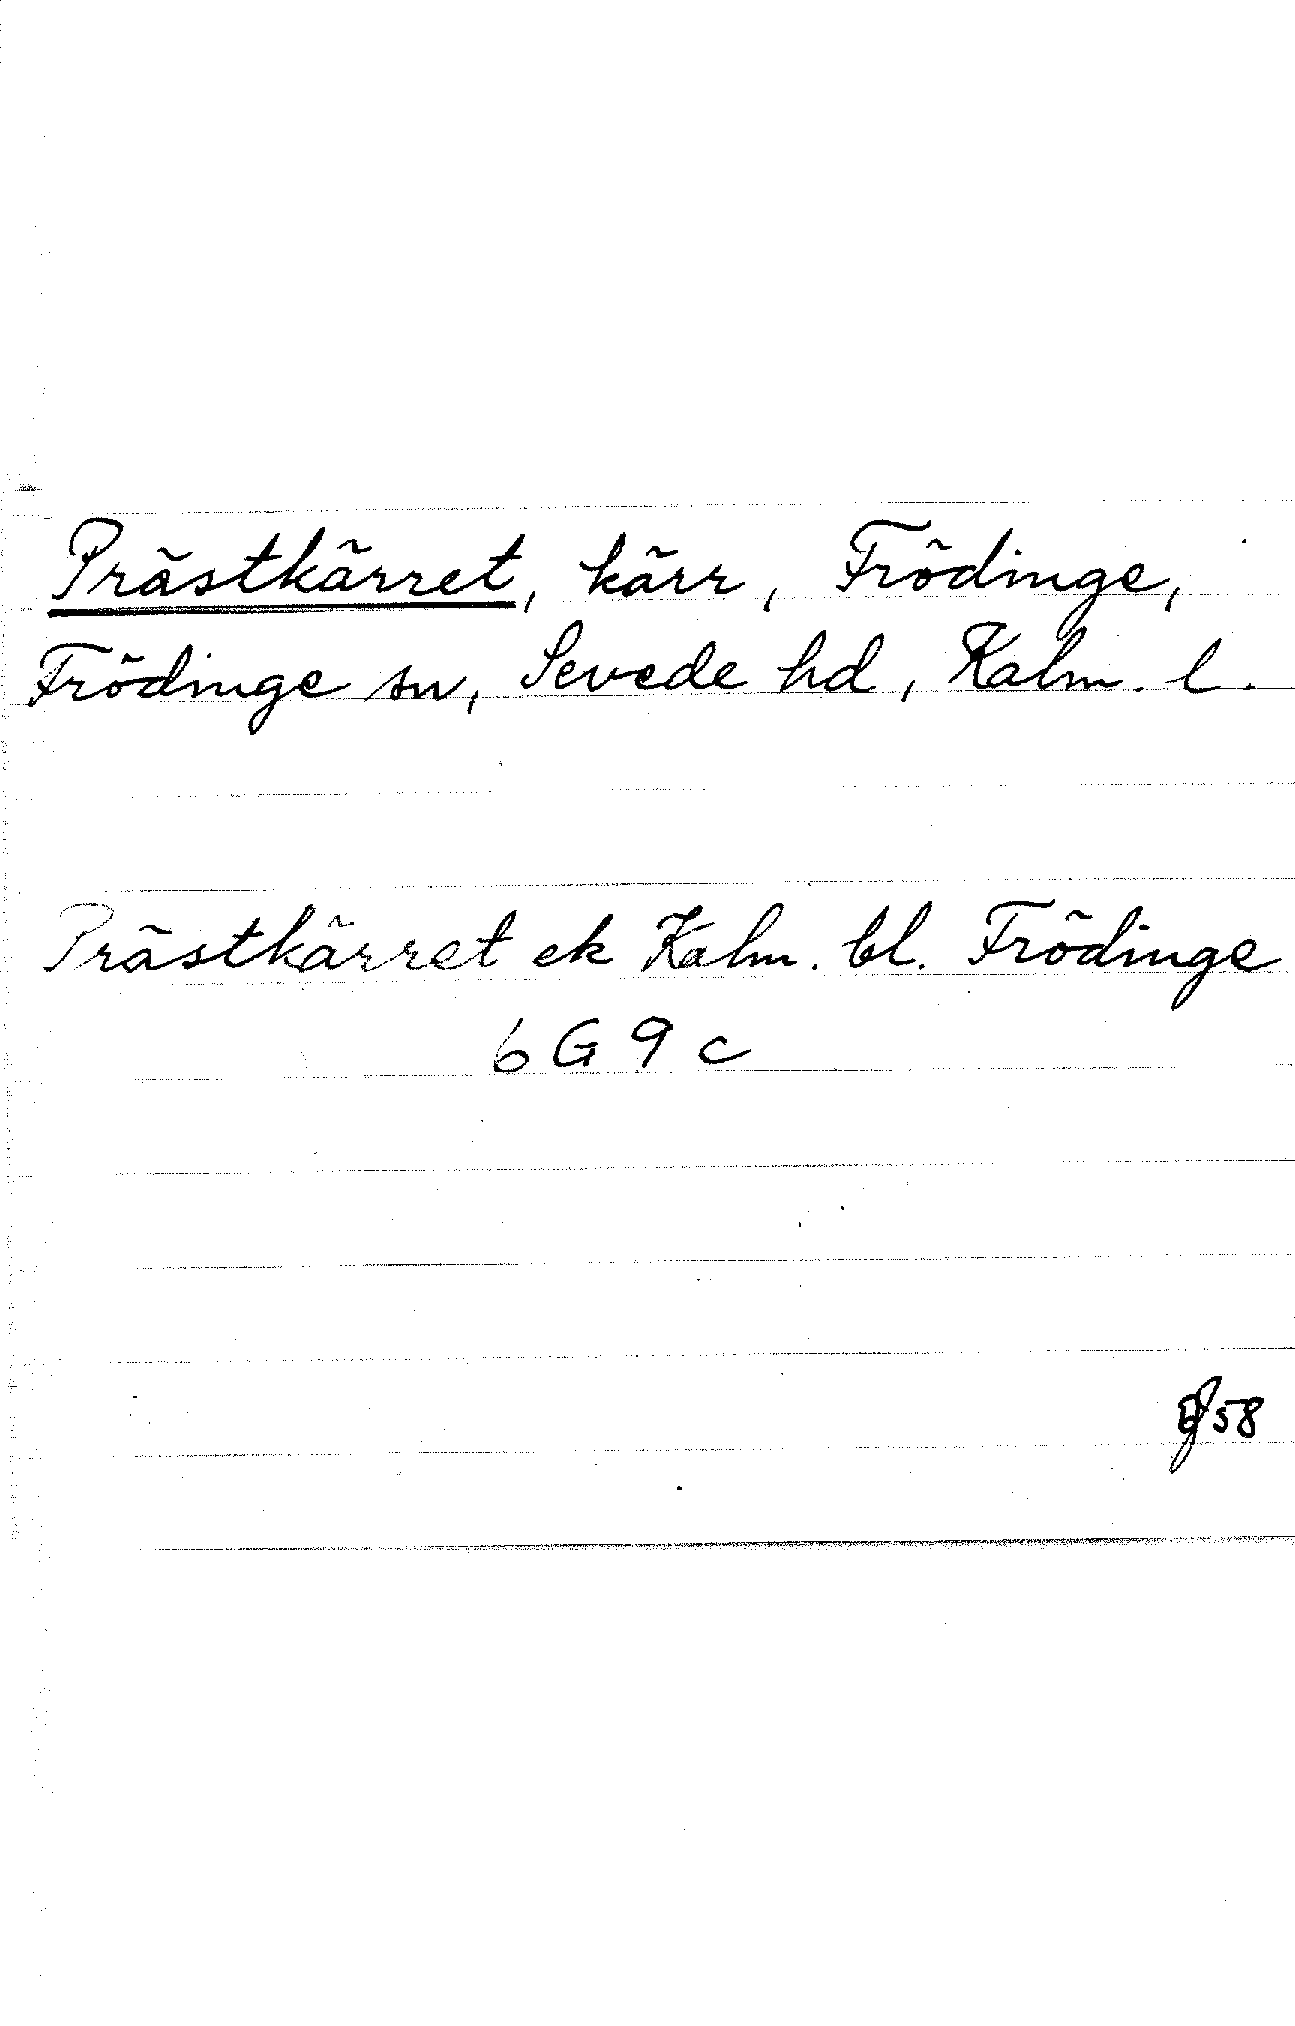 Prästkärret, kärr, Frödinge,
Frödinge sn, Sevede hd, Kalm. l.
Prästkärret ek Kalm. bl. Frödinge
6 G 9 c
58